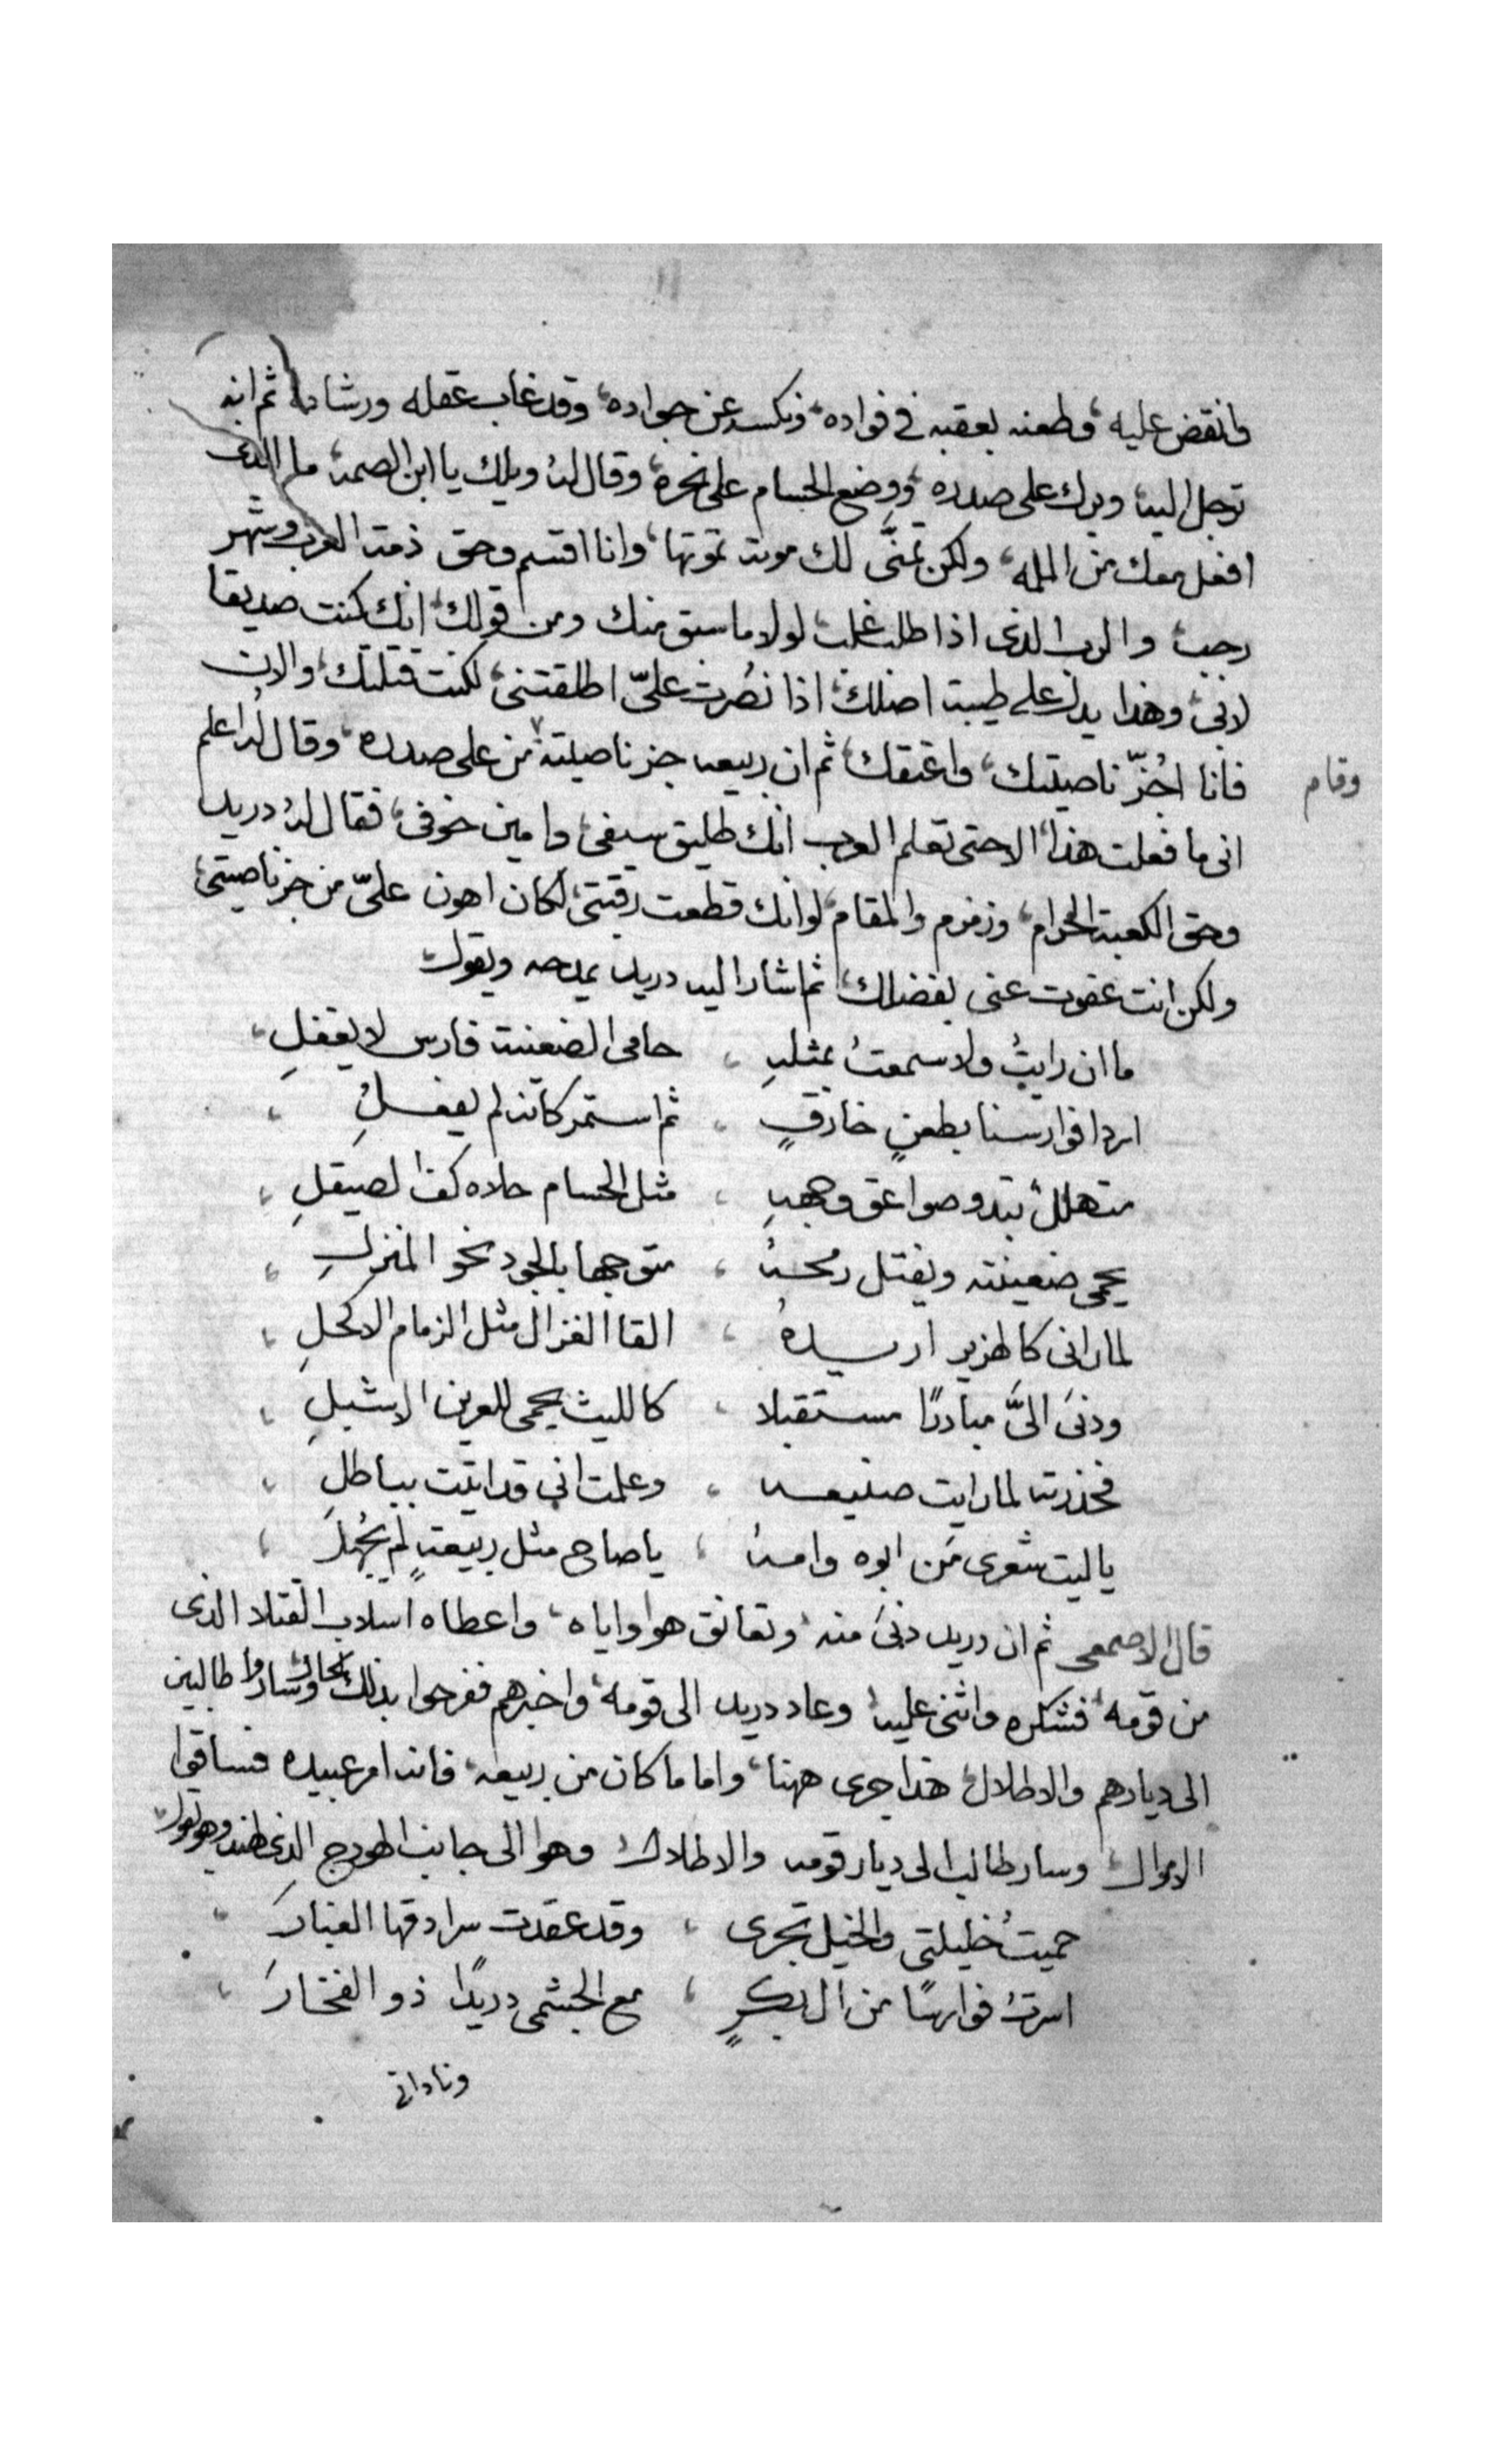 وانقض عليه، وطعنه بعقبه في فواده، ونكسه عن جواده، وقد غاب عقله ورشاده، ثم انه
ترجل اليه، وبرك على صدره، ووضع الحسام على نحره، وقال له ويلك يا ابن الصمه، ما الذى
افعل معك من المله، ولكن تمنَّى لك موته تموتها، وانا اقسم وحق ذمة العرب وشهر
رجب، والرب الذى اذا طلب غلب، لولا ما سبق منك ومن قولك، انك كنت صديقا
لابى، وهذا يدل على طيبة اصلك، اذا نصرت علىّ اطلقتنى، لكنت قتلتك، والان
فانا اجُزّ ناصيتك، واعتقك، ثم ان ربيعه جز ناصيته من على صدره، وقال له اعلم
وقام
انى ما فعلت هذا، الا حتى تعلم العرب انك طليق سيفى، وامين خوفى، فقال له دريد
وحق الكعبة الحرام، وزمزم والمقام، لو انك قطعت رقبتى، لكان اهون علىّ من جز ناصيتى،
ولكن انت عفوت عنى بفضلك، ثم اشار اليه دريد يمدحه ويقول
ما ان رايتُ ولا سمعتُ بمثلهِ ، حامى الضعنية فارس لا يغفلِ ،
اردا فوارسنا بطعنٍ خارقٍ ، ثم استمر كانه لم يفعلِ ،
متهللٌ تبدو صواعق وجههِ ، مثل الحسام جلاه كف الصيقلِ ،
يحمى ضعينته ويفتل رمحهُ ، متوجها بالجود نحو المنزلِ ،
لما رانى كالهزبر اريدهُ ، القا الغزال مثل الزمام الاكحلِ ،
ودنىَ الىَّ مبادرًا مستقبلا ، كالليث يحمى للعرين الاشبلِ ،
فحذرته لما رايت صنيعه ، وعلمت انى قد اتيت بباطلِ ،
يا ليت شعرى مَن ابوه وامهُ ، يا صاح مثل ربيعةٍ لم يُجهلَ ،
قال الاصمعى ثم ان دريد دنىَ منه، وتعانق هوا واياه، واعطاه اسلاب القتلا الذى
من قومه، فشكره واثنى عليه، وعاد دريد الى قومه، واخبرهم ففرحوا بذلك الحال، وساروا طالبين
الى ديارهم والاطلال، هذا جرى ههنا، واما ما كان من ربيعه، فانه امر عبيده فساقوا
الاموال، وسار طالب الى ديار قومه والاطلال، وهوا الى جانب الهودج الذى لهند وهو يقول
حميتُ خليلتى والخيل تجرى ، وقد عقدت سرادقها الغبارَ ،
اسرتُ فوارسًا من ال بكرٍ ، مع الجشمى دريدًا ذو الفخارَ ،
ونادانى